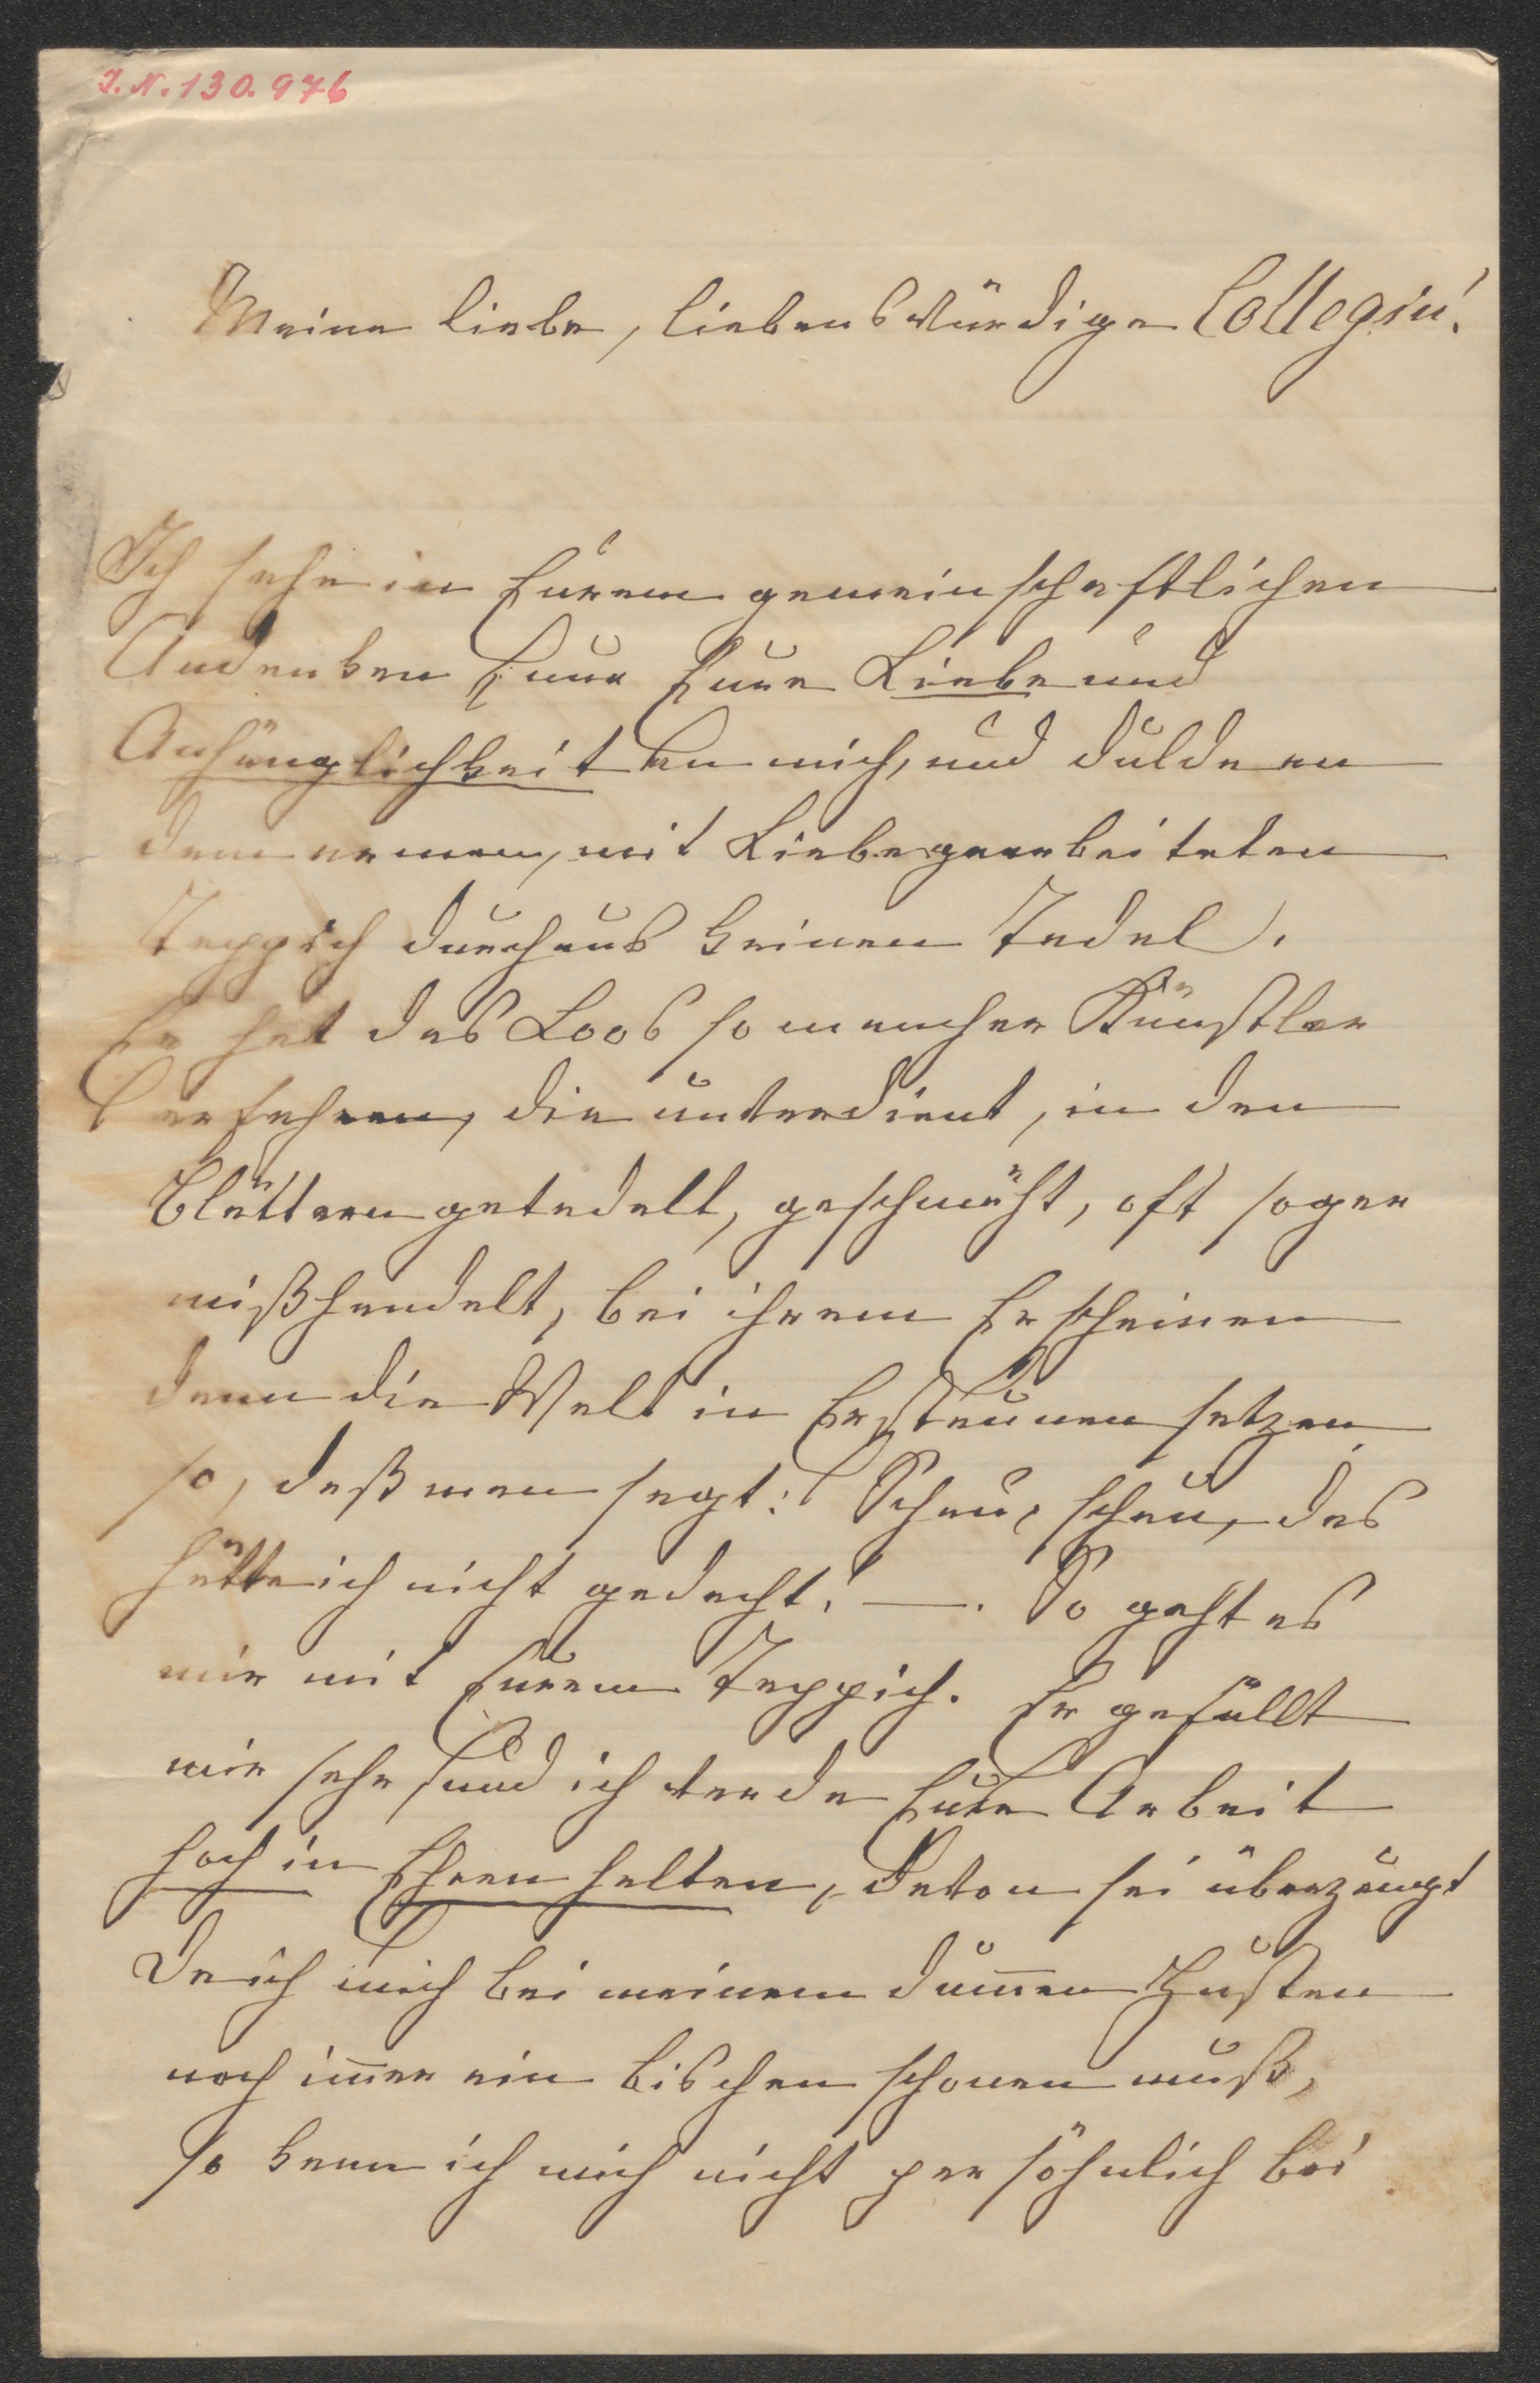 J.N. 130.976
Meine liebe, liebenswürdige Collegin!
Ich sehe in Eurem gemeinschaftlichen
Andenken Eure Liebe und
Anhänglichkeit an mich, und dulde an
dem armen, mit Liebe gearbeiteten
Teppich durchaus keinen Tadel.
Er hat das Loos so mancher Künstler
erfahren, die unverdient, in den
Blättern getadelt, geschmäht, oft sogar
mißhandelt, bei ihrem Erscheinen
dann die Welt in Erstaunen setzen
so, daß man sagt: Schau, schau, das
hätte ich nicht gedacht! —. So geht es
mir mit Eurem Teppich. Er gefällt
mir sehr und ich werde Eure Arbeit
hoch in Ehren halten, davon sei überzeugt
Da ich mich bei meinem dum̄en Husten
noch im̄er ein bischen schonen muß,
so kann ich mich nicht persöhnlich bei